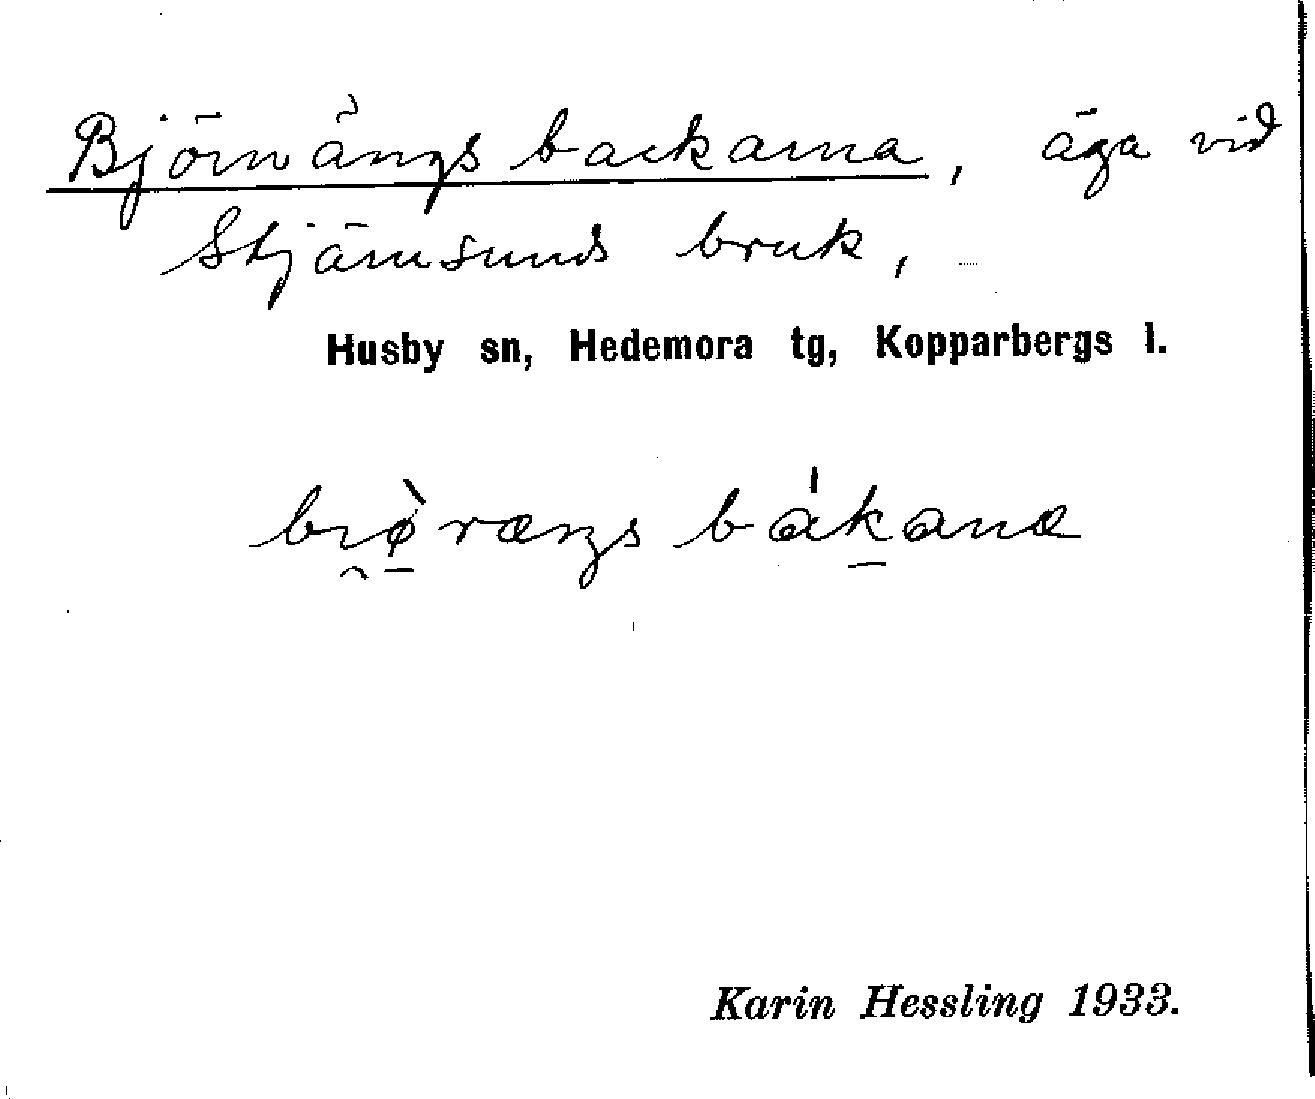 Björnängs backarna, äga vid
Stjärnsunds bruk,
Husby sn, Hedemora tg, Kopparbergs l.
bı̯ø̠̀ræŋs bák̠anα
Karin Hessling 1933.